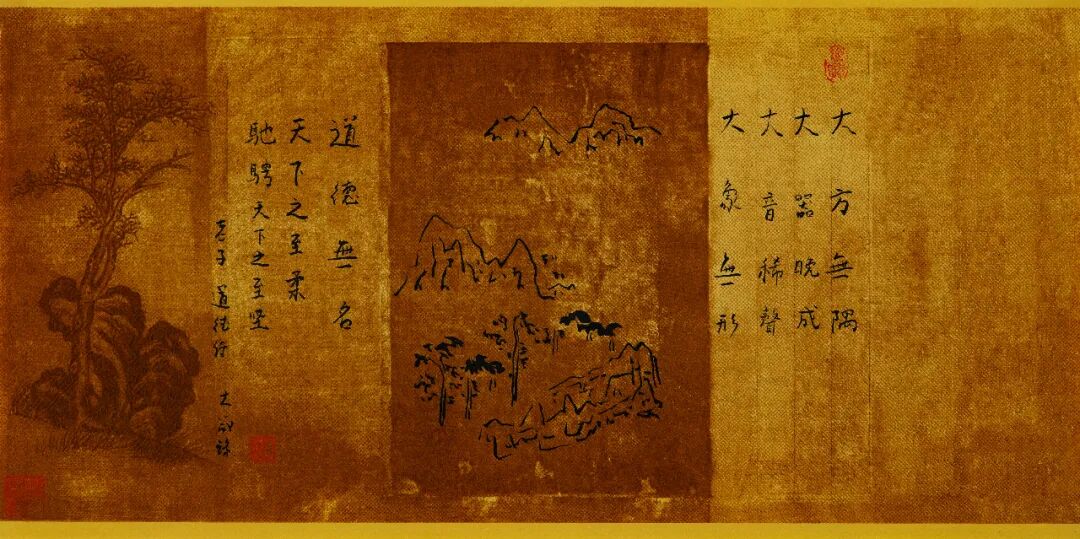 大方無隅
大器晚成
大音稀聲
大象無形
道德無名
天下之至柔
馳騁天下之至坚
老子 道德经